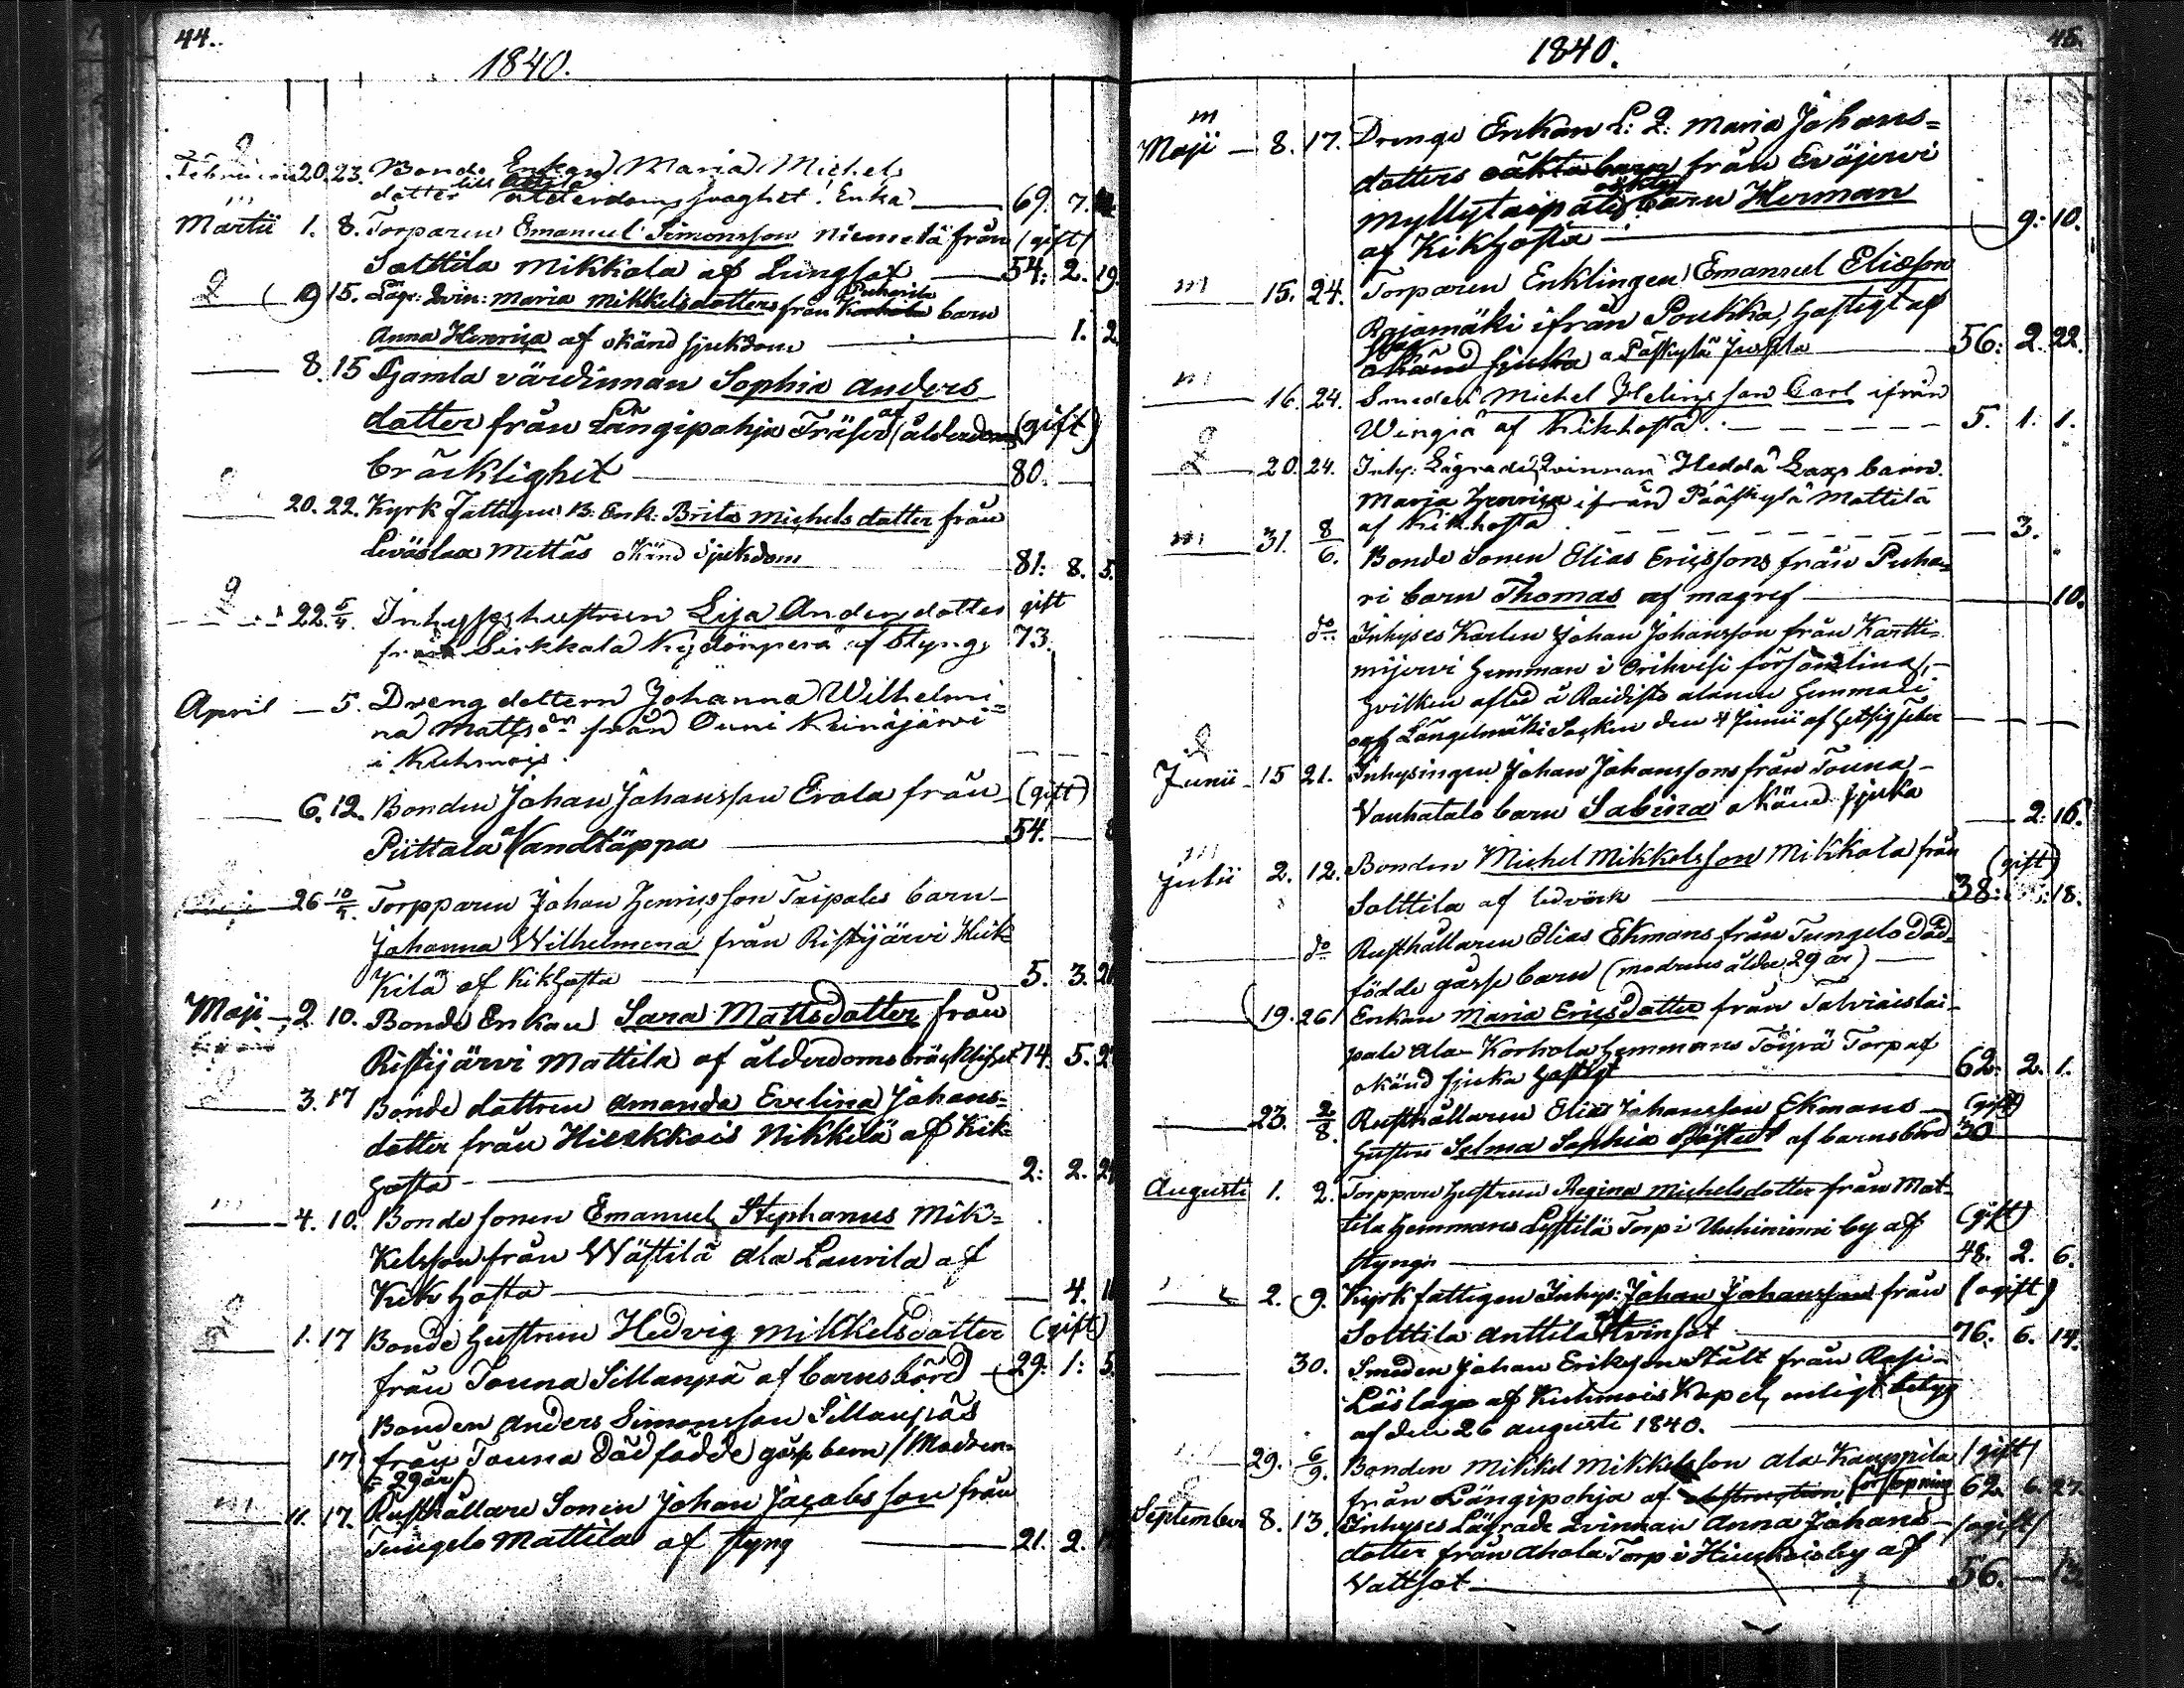 44.
1840.
Februarii 20. 23. Bonde Enkan Maria Michels
datter till Attila ålderdoms svaghet. Enka 69. 7.
Martii 1. 8. Torparen Emanuel Simonsson Niemelä från /gift/
Solttila Mikkola af Lungsot 54. 2. 19.
9 15. Läg: Qvin: Maria Mikkelsdatters från Puharila barn
Anna Henrica af okänd sjukdom 1. 2
8. 15 Gamla värdinnan Sophia Anders
datter från Längipohja Träsev af ålderdoms (gift)
bräcklighet 80.
20. 22. Kyrk Fattigen B: Enk: Brita Michelsdatter från
Leväslax Mettäs okänd sjukdom 81: 8. 5.
22. 5/4. Inhyseshustrun Lisa Andersdotter gift
från Sirkkala Kydönperä af Styng 73.
April 5. Dreng dottern Johanna Wilhelmi=
na Mattsdr från Ouni Keinäjärvi
i Kuhmois.
6. 12. Bonden Johan Johansson Erola från (gift)
Piittala af Vandtäppa 54.
26 10/5. Torpparen Johan Henricsson Taipales barn
Johanna Wilhelmina från Ristijärvi Heik
Kilä af Kikhosta 5. 3. 21
Maji 2 10. Bonde Enkan Sara Mattsdatter från
Ristijärvi Mattila af ålderdoms bräcklighet 74. 5. 2
3. 17 Bonde dottren Amanda Evelina Johans=
datter från Hirskkois Nikkilä af Kik=
hosta 2: 2. 2
m 4. 10. Bonde sonen Emanuel Stephanus Mik=
kelsson från Wästilä Ala Laurila af
Kikhosta 4. 1
1. 17 Bonde hustrun Hedvig Mikkelsdatter (gift)
från Touna Sillanpä af barnsbörd 29: 1: 5.
Bonden Anders Simonsson Sillanpääs
17 från Touna Död födde goss barn /Modren
= 29 år/
m 11. 17. Rusthållare Sonen Johan Jacobsson från
Tungelo Mattila af styng 21. 2.
45.
1840.
m
Maji 8. 17. Drengs Enkan L: Q: Maria Johans=
datters oäkta barn från Eväjervi
Myllytaipale oäkta barn Herman
af Kikhosta 9: 10.
m 15. 24. Torparen Enklingen Emanuel Eliasson
Rajamäki ifrån Poukka, hastigt af
okänd sjuka a Päskylä Jussila 56: 2. 22.
m 16. 24. Smeden Michel Helins son Carl ifrån
Wingiä af Kikhosta. 5. 1. 1.
20. 24. Inhy: Lägrade Qvinnan Hedda Lax barn
Maria Henrica ifrån Pääskylä Mattila
af Kikhosta. 3.
m 31. 8/6. Bonde Sonen Elias Ericssons från Puha=
ri barn Thomas af magref 10.
do Inhyses Karlen Johan Johansson från Kartti=
mijervi hemman i Orihvesi församling,
hvilken afled å Raidisto alanen hemman i
af Längelmäki Socken den 4 Junii af hetsig feber
Junii 15 21. Inhysingen Johan Johanssons från Touna
Vanhatalo barn Sabina okänd sjuka 2: 16.
m
Julii 2. 12. Bonden Michel Mikkelsson Mikkola från (gift)
Solttila af ledvärk 38: 18.
do Rusthållaren Elias Ekmans från Tungelo död=
födde goss barn (modrens ålder 29 år)
19. 26 Enkan Maria Ericsdatter från Talviaistai=
pale Ala-Korhola hemmans Töyrä Torp af
okänd sjuka hastigt 62: 2. 1.
23. 2/8. Rusthållaren Elias Johansson Ekmans (gift)
hustru Selma Sophia Sjöstedt af barnsbörd 30
Augusti 1. 2. Torppare hustrun Regina Michelsdotter från Mat=
tila hemmans Lystilä Torp i Uuhiniemi by af (gift)
styng 48. 2. 6.
2. 9. Kyrkfattigen Inhys: Johan Johansson från (ogift)
Solttila Anttila af Tvinsot 76. 6. 14.
30. Smeden Johan Eriksson Stålt från Rapi=
Läslaga af Kuhmois Kapel, enligt betyg
af den 26 augusti 1840.
29. 6/9. Bonden Mikkel Mikkelsson Ala-Kauppila /gift/
från Längipohja af obstruction förstopning 62. 6. 27.
September 8. 13. Inhyses Lägrade Qvinnan Anna Johans= /ogift/
datter från Ahola Torp i Hirskois by af
Vattsot 56. 13.